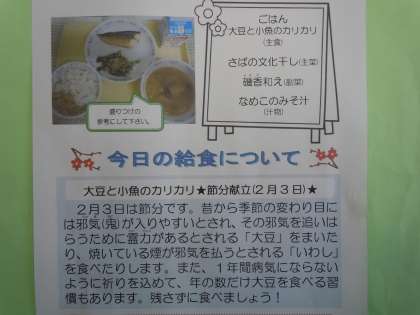 ごはん
大豆と小魚のカリカリ
(主食)
さばの文化干し(主菜)
磯香和え(副菜)
なめこのみそ汁
(汁物)
盛りつけの
参考にして下さい。
今日の給食について
大豆と小魚のカリカリ★節分献立(2月3日)★
2月3日は節分です。昔から季節の変わり目に
は邪気(鬼)が入りやすいとされ、その邪気を追いは
らうために霊力があるとされる「大豆」をまいた
り、焼いている煙が邪気を払うとされる「いわし」
を食べたりします。また、1年間病気にならない
ように祈りを込めて、年の数だけ大豆を食べる習
慣もあります。残さずに食べましょう!